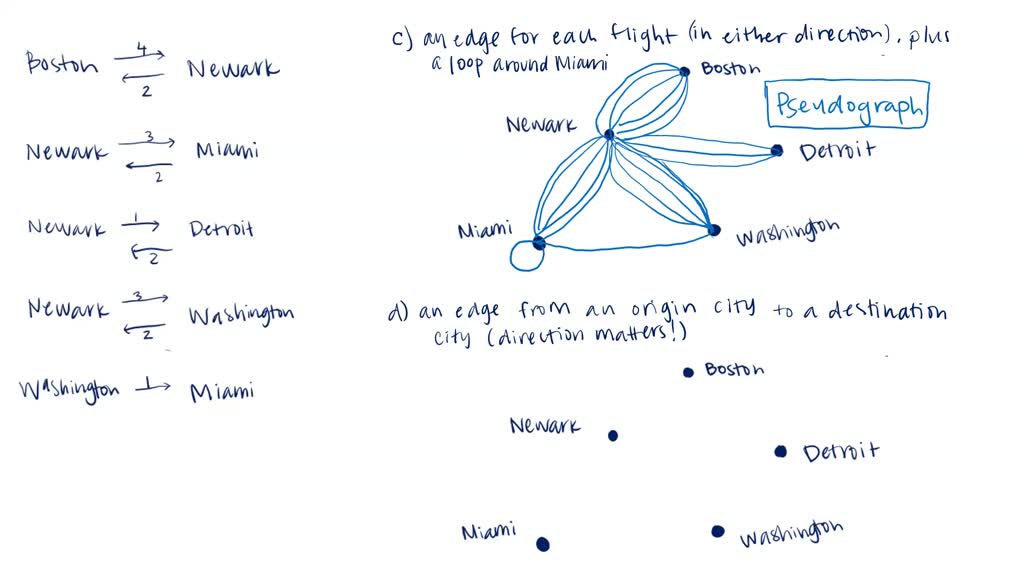 Boston 4 2 Newark
Newark 3 2 Miami
Newark 1 2 Detroit
Newark 3 2 Washington
Washington 1 Miami
c) an edge for each flight (in either direction), plus
a loop around Miami
Boston
Pseudograph
Newark
Detroit
Miami
Washington
d) an edge from an origin city to a destination
city (direction matters!)
Boston
Newark
Detroit
Miami
Washington